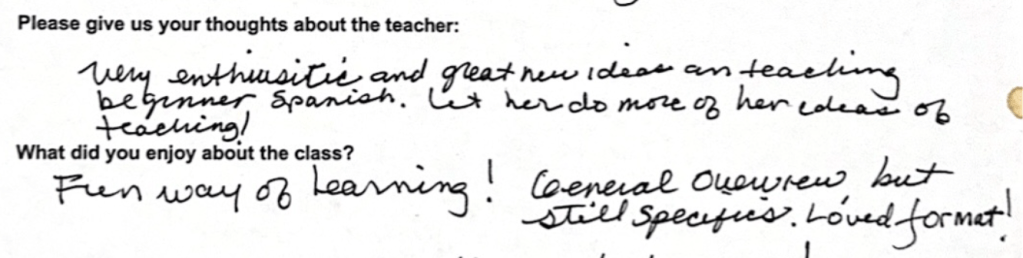 Please give us your thoughts about the teacher:
Very enthusitic and great new ideas on teaching
beginner Spanish. Let her do more of her ideas of
teaching!
What did you enjoy about the class?
Fun way of Learning! General overview, but
still specifics. Loved format!